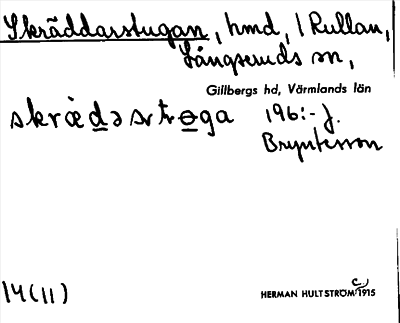 Skräddarstugan, hmd, / Rullan,
Långseruds sn,
Gillbergs hd, Värmlands län
skrædə sṭrɵga 196:- J.
Bryntesson
14(11)
HERMAN HULTSTRÖM C.) 1915